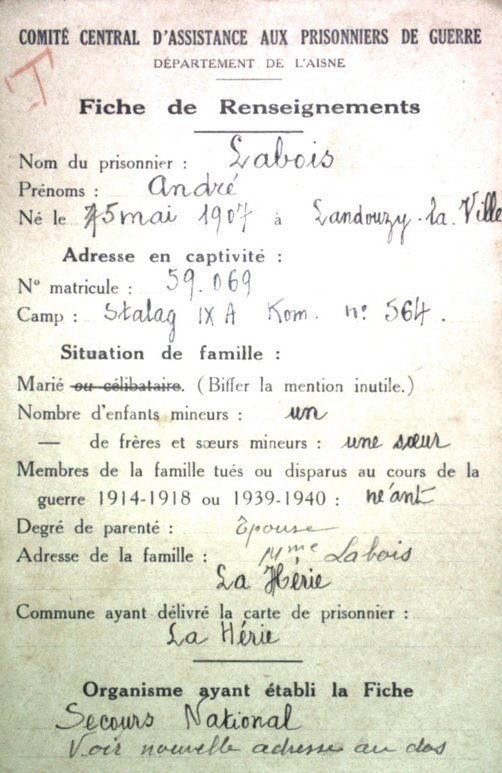 COMITÉ CENTRAL D'ASSISTANCE AUX PRISONNIERS DE GUERRE
DÉPARTEMENT DE L'AISNE
Fiche de Renseignements
Nom du prisonnier : Labois
Prénoms : André
Né le 15 mai 1907 à Landouzy-la-Ville
Adresse en captivité :
N° matricule : 59.069
Camp : Stalag IX A Kom. n° 564.
Situation de famille :
Marié ou célibataire. (Biffer la mention inutile.)
Nombre d'enfants mineurs : un
— de frères et sœurs mineurs : une sœur
Membres de la famille tués ou disparus au cours de la
guerre 1914-1918 ou 1939-1940 : néant
Degré de parenté : Epouse
Adresse de la famille : Mme Labois
La Hérie
Commune ayant délivré la carte de prisonnier :
La Hérie
Organisme ayant établi la Fiche
Secours National
Voir nouvelle adresse au dos